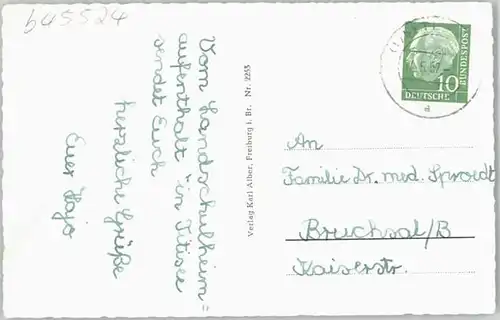 b45524
Vom Landschulheim=
aufenthalt in Titisee
sendet Euch
herzliche Grüße
Euer Hajo
Verlag Karl Alber, Freiburg i. Br. Nr. 2255
10
DEUTSCHE
BUNDESPOST
An
Familie Dr. med. Sproedt
Bruchsal/B
Kaiserstr.